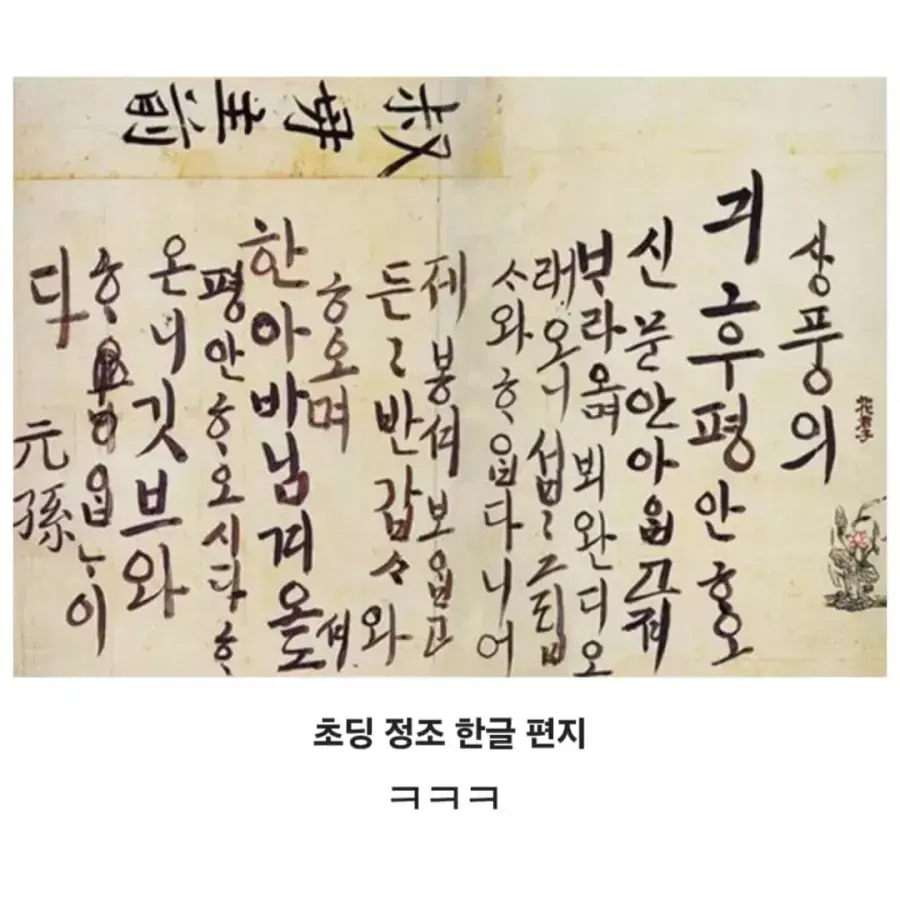 叔母主前
상풍의
긔후평안ᄒᆞ오
신문안아ᄋᆞᆸ고져
ᄇᆞ라오며뵈완디오
래오니섭〻그립
ᄉᆞ와ᄒᆞᄋᆞᆸ다니어
제봉셔보ᄋᆞᆸ고
든〻반갑ᄉᆞ와
ᄒᆞ오며
한아바님겨오셔도
평안ᄒᆞ오시다ᄒᆞ
온니깃브와
ᄒᆞᄋᆞᆸᄂᆞ이
다
元孫
花君子
초딩 정조 한글 편지
ㅋㅋㅋ